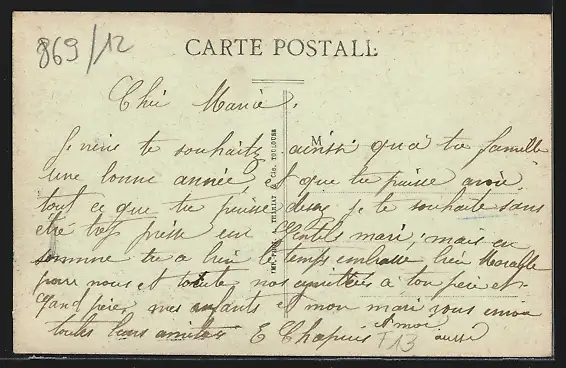 869/12
CARTE POSTALE
Chér Marie.
Je viens te souhaiter ainsi qu'à ta famille
M
une bonne année, et que tu puisse avoir
tout ce que tu puisse désirer je te souhaite sans
être trop presse un gentil mari; mais en
somme tu a bien le temps embrasse bien Marcelle
pour nous et toute nos amitiées à ton père et
Grand père, mes enfants et mon mari vous envoie
toutes leurs amitiés E Chapuis et moi aussi
F13
IMP. PHOT. THARIAT & CIE, TOULOUSE